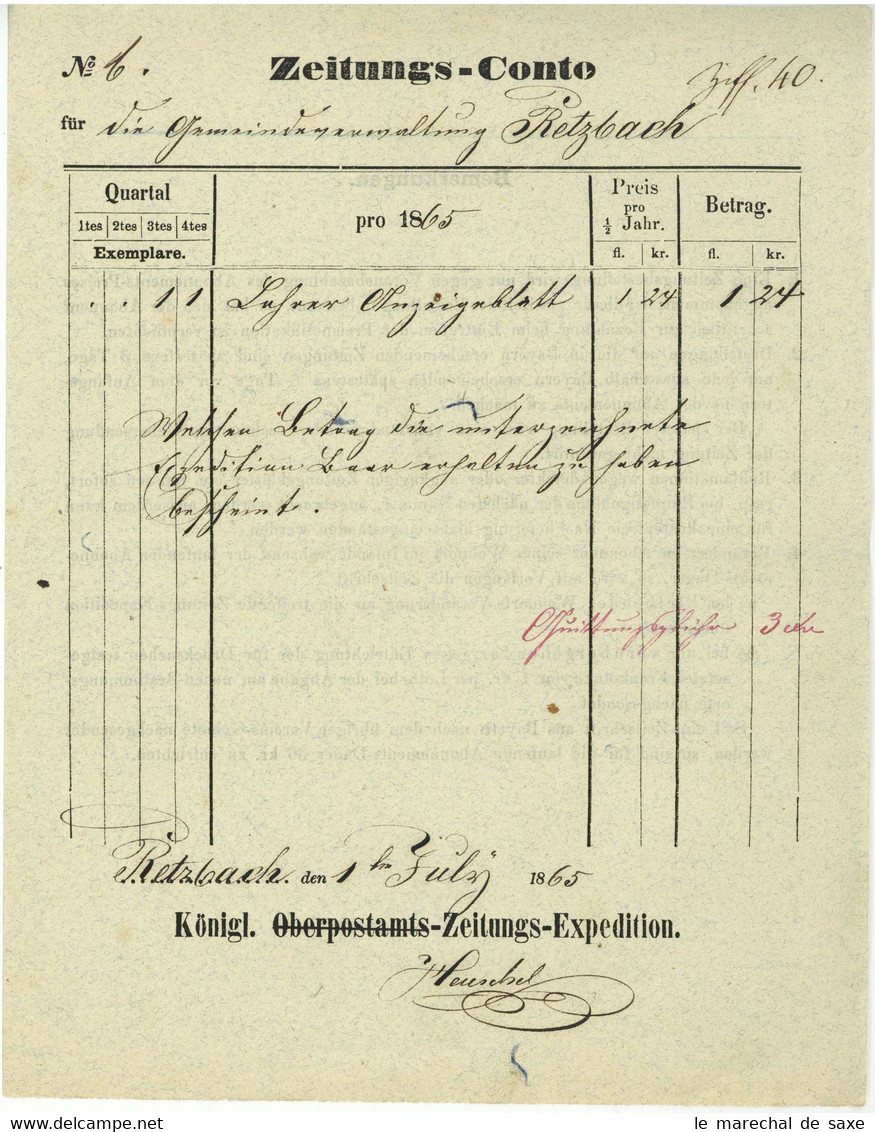 No 6. Zeitungs-Conto Ziff. 40.
für die Gemeindeverwaltung Retzbach
Quartal
1tes 2tes 3tes 4tes
Exemplare.
pro 1865
Preis
pro
½ Jahr.
fl. kr.
Betrag.
fl. kr.
. . 1 1 Lohrer Anzeigeblatt 1 24 1 24
Welchen Betrag die unterzeichnete
Expedition Baar erhalten zu haben
bescheint.
Quittungsgebühr 3 kr
Retzbach den 1ten July 1865
Königl. Oberpostamts-Zeitungs-Expedition.
Heuschel
le marechal de saxe